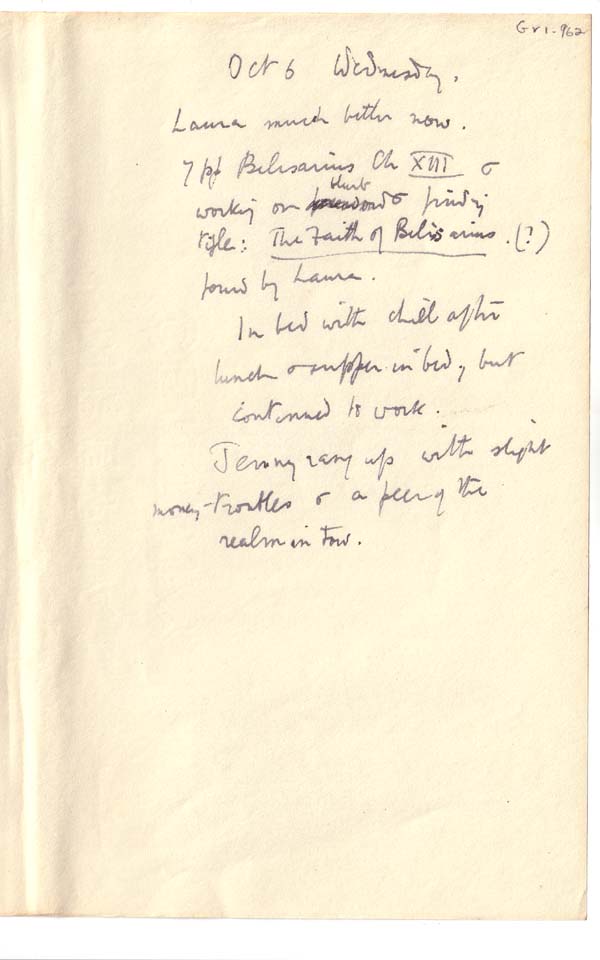 Gr1-962
Oct 6 Wednesday.
Laura much better now.
7 pp Belisarius Ch XIII &
blurb
working on & finding
title: The Faith of Belisarius. (?)
found by Laura.
In bed with chill after
lunch & supper in bed, but
continued to work.
Jenny rang up with slight
money-troubles & a peer of the
realm in tow.